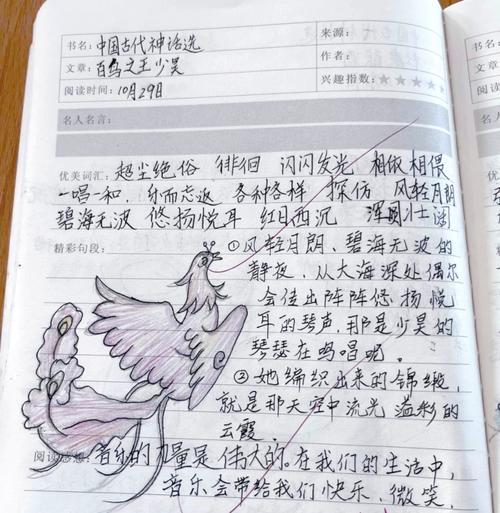 书名：中国古代神话选
来源：
文章：百鸟之王少昊
作者：
阅读时间：10月29日
兴趣指数：★★★★★
名人名言：
优美词汇：超尘绝俗 徘徊 闪闪发光 相依相偎
一唱一和、乐而忘返 各种各样 探仿 风轻月朗
碧海无波 悠扬悦耳 红日西沉 浑圆壮阔
精彩句段：①风轻月朗、碧海无波的
静夜、从大海深处偶尔
会传出阵阵悠扬悦
耳的琴声，那是少昊的
琴瑟在鸣唱呢。
②她编织出来的锦缎，
就是那天空中流光溢彩的
云霞。
阅读感想：音乐的力量是伟大的。在我们的生活中，
音乐会带给我们快乐、微笑，